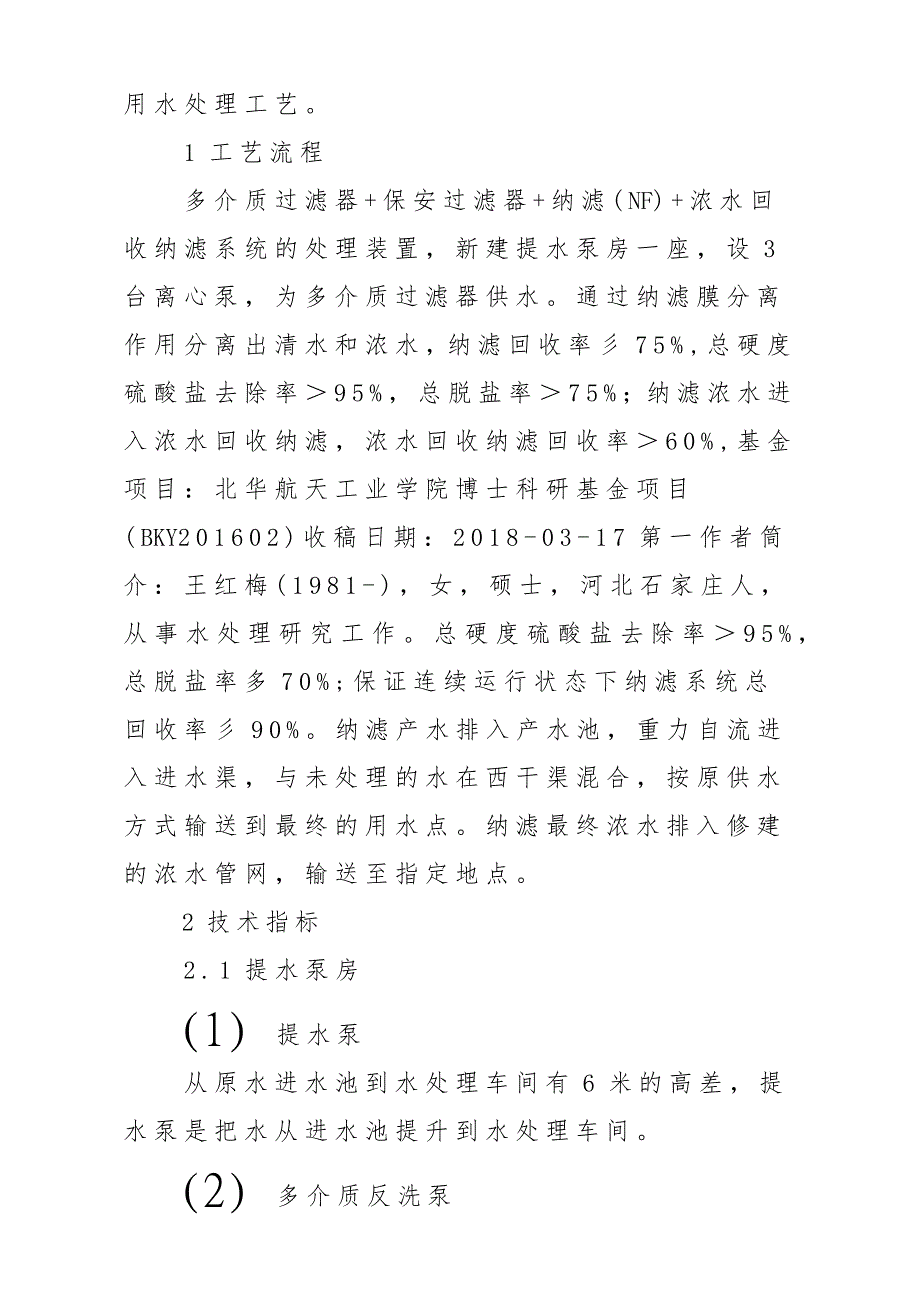 用水处理工艺。
1 工艺流程
多介质过滤器+保安过滤器+纳滤(NF)+浓水回
收纳滤系统的处理装置，新建提水泵房一座，设 3
台离心泵，为多介质过滤器供水。通过纳滤膜分离
作用分离出清水和浓水，纳滤回收率彡 75%,总硬度
硫酸盐去除率＞95%，总脱盐率＞75%；纳滤浓水进
入浓水回收纳滤，浓水回收纳滤回收率＞60%,基金
项目：北华航天工业学院博士科研基金项目
(BKY201602)收稿日期：2018-03-17 第一作者简
介：王红梅(1981-)，女，硕士，河北石家庄人，
从事水处理研究工作。总硬度硫酸盐去除率＞95%，
总脱盐率多 70%;保证连续运行状态下纳滤系统总
回收率彡 90%。纳滤产水排入产水池，重力自流进
入进水渠，与未处理的水在西干渠混合，按原供水
方式输送到最终的用水点。纳滤最终浓水排入修建
的浓水管网，输送至指定地点。
2 技术指标
2.1 提水泵房
(1) 提水泵
从原水进水池到水处理车间有 6 米的高差，提
水泵是把水从进水池提升到水处理车间。
(2) 多介质反洗泵